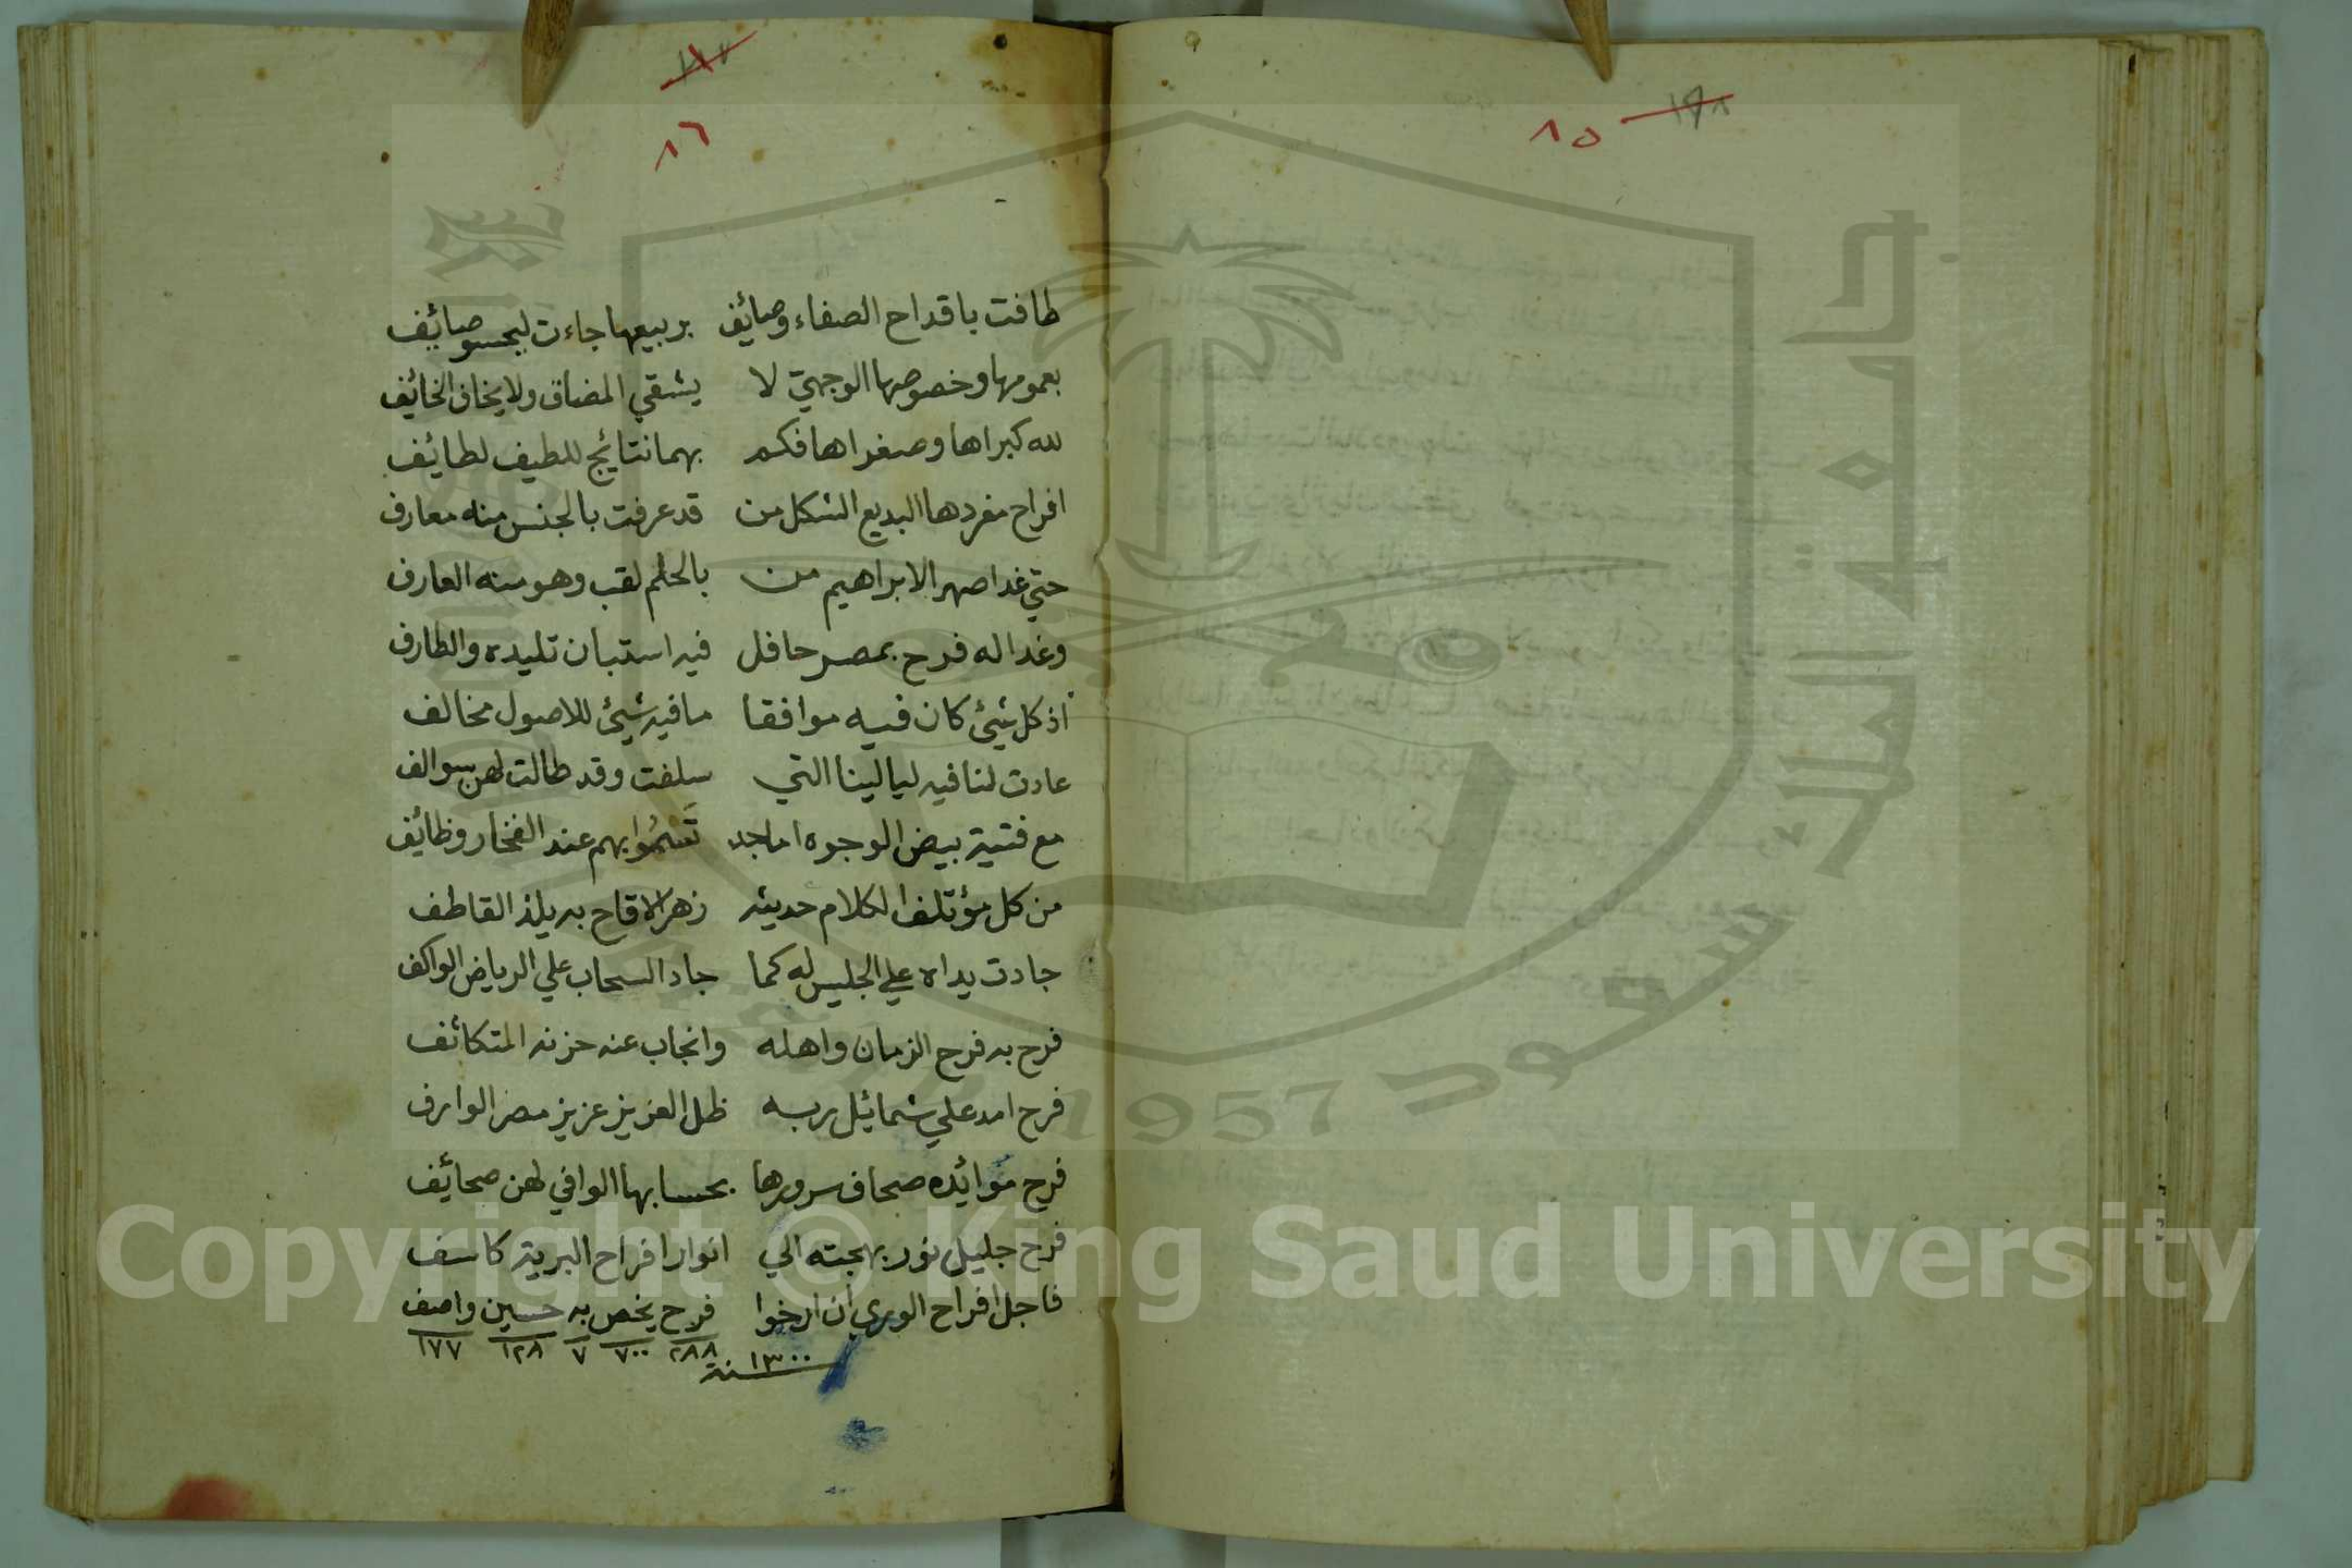 ٨٥
١١٧
٨٦
طافت باقداح الصفاء وصائف بربيعها جاءت ليحسو صائف
بعمومها وخصوصها الوجهي لا يشقي المضاف ولا يخاف الخائف
لله كبراها وصغراها فكم بهما نتائج للطيف لطائف
افراح مفردها البديع الشكل من قد عرفت بالجنس منه معارف
حتي غدا صهر الابراهيم من بالحلم لقب وهو منه العارف
وغدا له فرح بمصر حافل فيه استبان تليده والطارف
اذ كل شيئ كان فيه موافقا ما فيه شيئ للاصول مخالف
عادت لنا فيه ليالينا التي سلفت وقد طالت لهن سوالف
مع فتية بيض الوجوه اماجد تَسْمُوا بهم عند الفخار وظائف
من كل مؤتلف الكلام حديثه زهر الاقاح به يلذ القاطف
جادت يداه علي الجليس له كما جاد السحاب علي الرياض الواكف
فرح به فرح الزمان واهله وانجاب عنه حزنه المتكاثف
فرح امد علي شمائل ربه ظل العزيز عزيز مصر الوارف
فرح موائده صحاف سرورها بحسابها الوافي لهن صحائف
فرح جليل نور بهجته الي انوار افراح البرية كاسف
فاجل افراح الوري ان ارخوا فرح يخص به حسين واصف
٢٨٨ ٧٠٠ ٧ ١٢٨ ١٧٧
سنة ١٣٠٠
جامعة الملك سعود
1957
Copyright © King Saud University